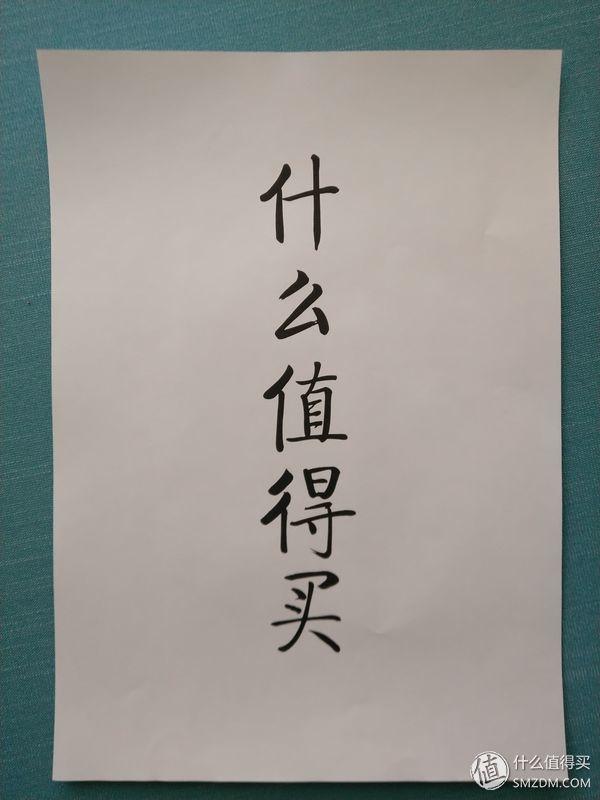 什么值得买
值 什么值得买
SMZDM.COM